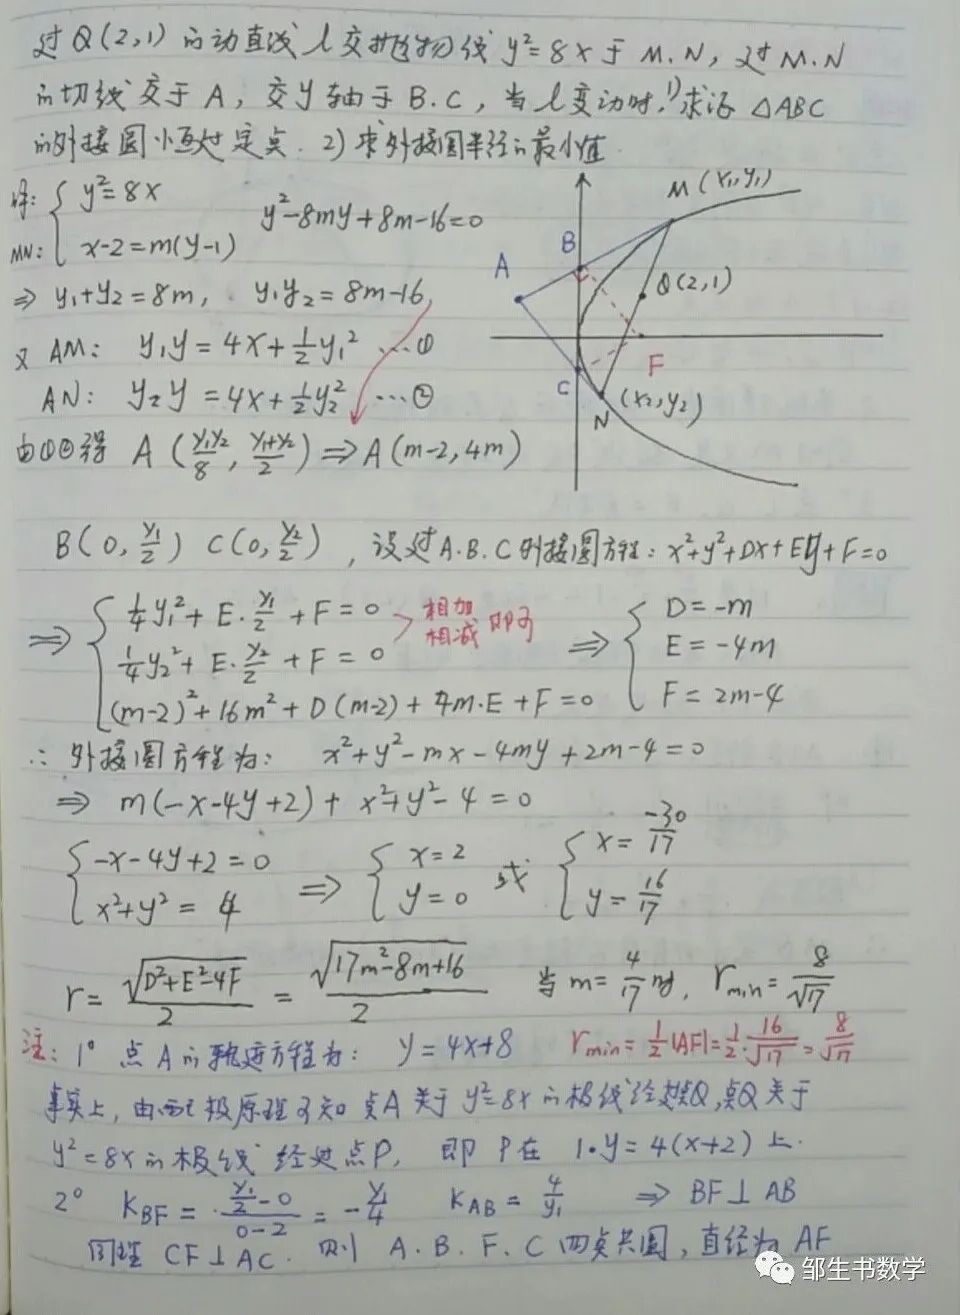 过Q(2,1)的动直线l交抛物线y²=8x于M.N，过M.N
的切线交于A，交y轴于B.C，当l变动时.1)求证△ABC
的外接圆恒过定点. 2)求外接圆半径的最小值.
解: { y²=8x
MN: x-2=m(y-1)
y²-8my+8m-16=0
⇒ y₁+y₂=8m, y₁y₂=8m-16,
又 AM: y₁y=4x+½y₁² …①
AN: y₂y=4x+½y₂² …②
由①②得 A(y₁y₂/8, (y₁+y₂)/2) ⇒ A(m-2,4m)
M(x₁,y₁)
B
A
Q(2,1)
F
C
N (x₂,y₂)
B(0, y₁/2) C(0, y₂/2), 设过A.B.C外接圆方程: x²+y²+Dx+Ey+F=0
⇒ { ¼y₁²+E·y₁/2+F=0
¼y₂²+E·y₂/2+F=0
(m-2)²+16m²+D(m-2)+4m·E+F=0
相加
相减 即可
⇒ { D=-m
E=-4m
F=2m-4
∴ 外接圆方程为: x²+y²-mx-4my+2m-4=0
⇒ m(-x-4y+2)+x²+y²-4=0
{ -x-4y+2=0
x²+y²=4
⇒ { x=2
y=0
或 { x=-30/17
y=16/17
r=√(D²+E²-4F)/2=√(17m²-8m+16)/2 当m=4/17时, rmin=8/√17
注: 1° 点A的轨迹方程为: y=4x+8 rmin=½|AF|=½·16/√17=8/√17
事实上, 由配极原理可知点A关于y²=8x的极线经过点Q,点Q关于
y²=8x的极线经过点P, 即P在 1·y=4(x+2)上.
2° KBF=(y₁/2-0)/(0-2)=-y₁/4 KAB=4/y₁ ⇒ BF⊥AB
同理 CF⊥AC. 则 A.B.F.C四点共圆, 直径为AF
邹生书数学